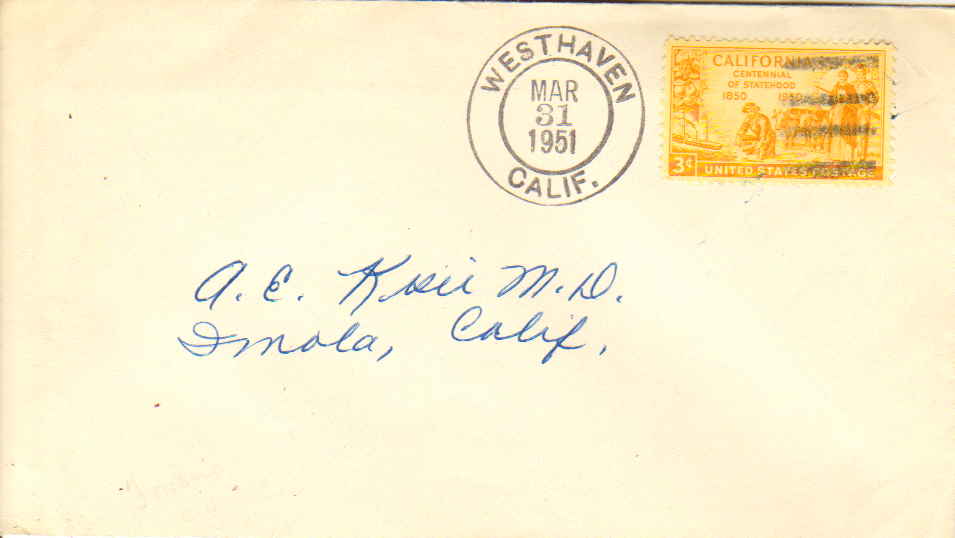 WESTHAVEN
MAR
31
1951
CALIF.
CALIFORNIA
CENTENNIAL
OF STATEHOOD
1850 1950
3¢ UNITED STATES POSTAGE
A. E. M.D.
Imola, Calif.